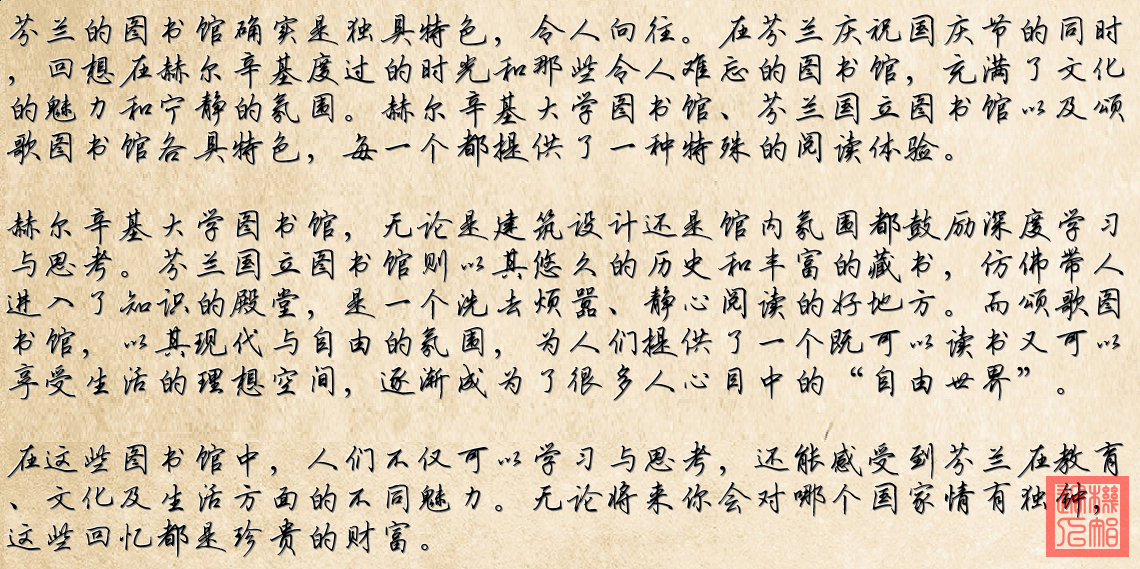 芬兰的图书馆确实是独具特色，令人向往。在芬兰庆祝国庆节的同时
，回想在赫尔辛基度过的时光和那些令人难忘的图书馆，充满了文化
的魅力和宁静的氛围。赫尔辛基大学图书馆、芬兰国立图书馆以及颂
歌图书馆各具特色，每一个都提供了一种特殊的阅读体验。
赫尔辛基大学图书馆，无论是建筑设计还是馆内氛围都鼓励深度学习
与思考。芬兰国立图书馆则以其悠久的历史和丰富的藏书，仿佛带人
进入了知识的殿堂，是一个洗去烦嚣、静心阅读的好地方。而颂歌图
书馆，以其现代与自由的氛围，为人们提供了一个既可以读书又可以
享受生活的理想空间，逐渐成为了很多人心目中的“自由世界”。
在这些图书馆中，人们不仅可以学习与思考，还能感受到芬兰在教育
、文化及生活方面的不同魅力。无论将来你会对哪个国家情有独钟，
这些回忆都是珍贵的财富。